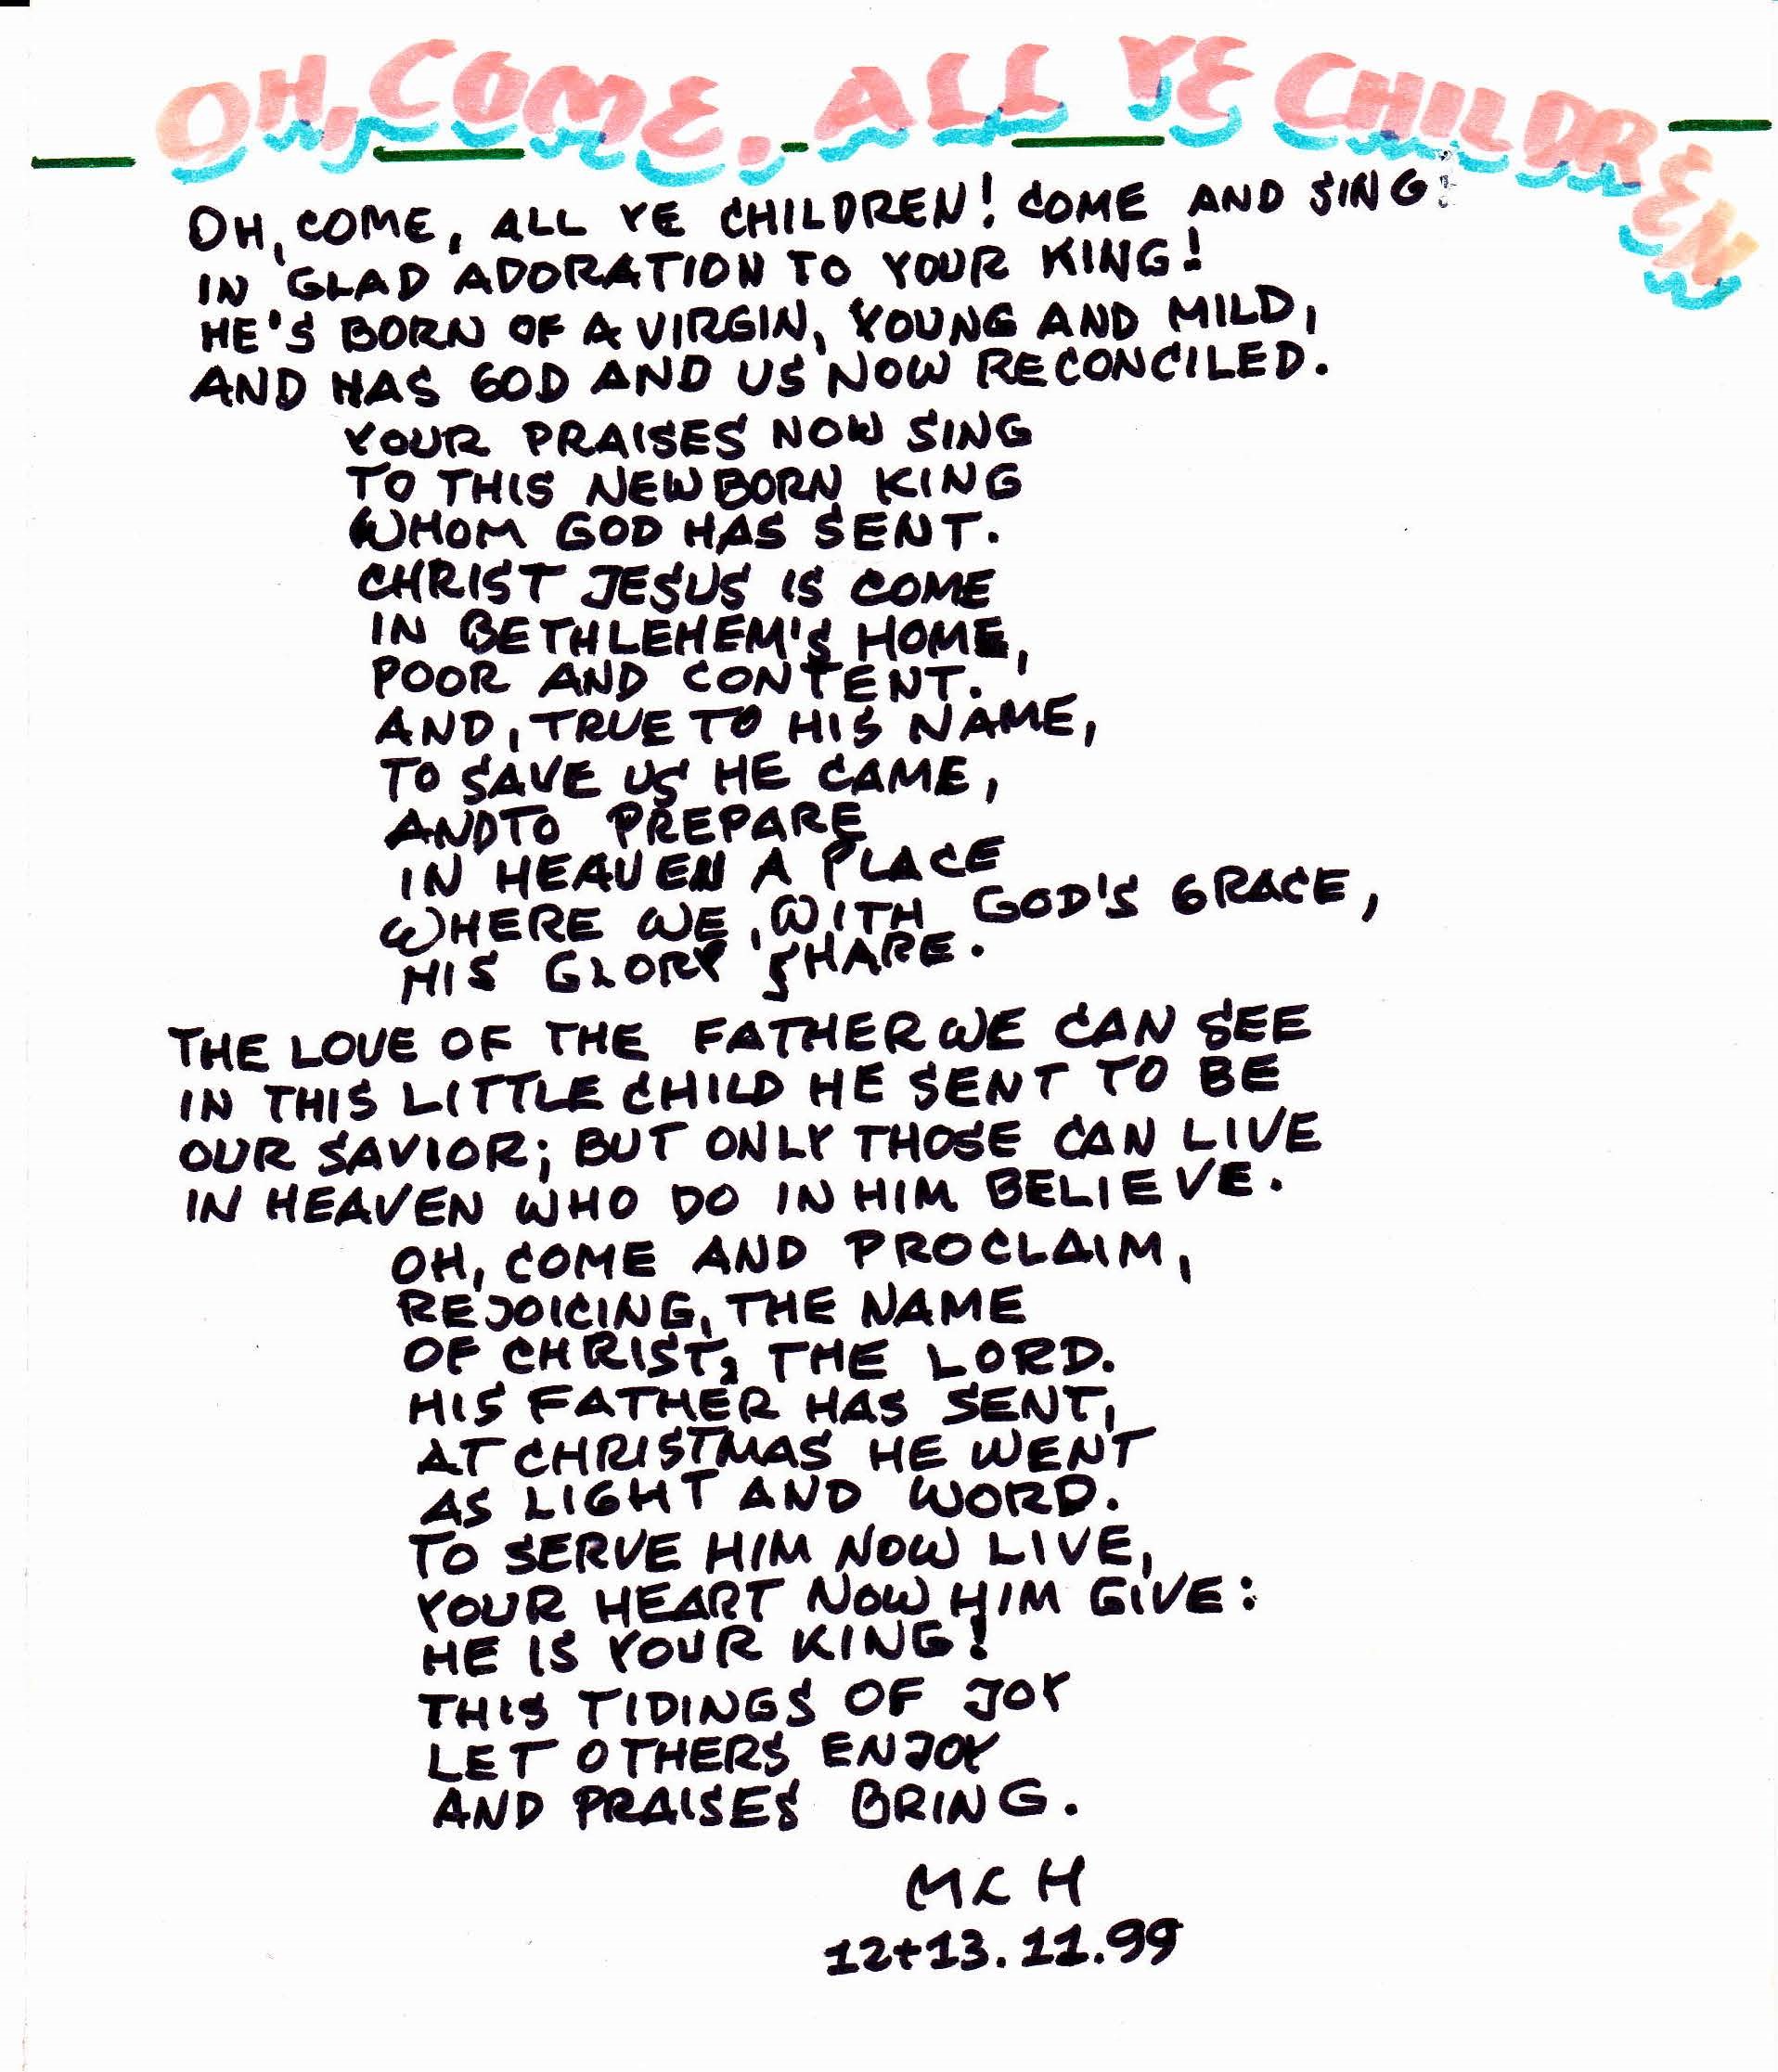 OH, COME, ALL YE CHILDREN
OH, COME, ALL YE CHILDREN! COME AND SING
IN GLAD ADORATION TO YOUR KING!
HE'S BORN OF A VIRGIN, YOUNG AND MILD,
AND HAS GOD AND US NOW RECONCILED.
YOUR PRAISES NOW SING
TO THIS NEWBORN KING
WHOM GOD HAS SENT.
CHRIST JESUS IS COME
IN BETHLEHEM'S HOME,
POOR AND CONTENT.
AND, TRUE TO HIS NAME,
TO SAVE US HE CAME,
ANDTO PREPARE
IN HEAVEN A PLACE
WHERE WE, WITH GOD'S GRACE,
HIS GLORY SHARE.
THE LOVE OF THE FATHER WE CAN SEE
IN THIS LITTLE CHILD HE SENT TO BE
OUR SAVIOR; BUT ONLY THOSE CAN LIVE
IN HEAVEN WHO DO IN HIM BELIEVE.
OH, COME AND PROCLAIM,
REJOICING, THE NAME
OF CHRIST, THE LORD.
HIS FATHER HAS SENT,
AT CHRISTMAS HE WENT
AS LIGHT AND WORD.
TO SERVE HIM NOW LIVE,
YOUR HEART NOW HIM GIVE:
HE IS YOUR KING!
THIS TIDINGS OF JOY
LET OTHERS ENJOY
AND PRAISES BRING.
MLH
12+13.11.99